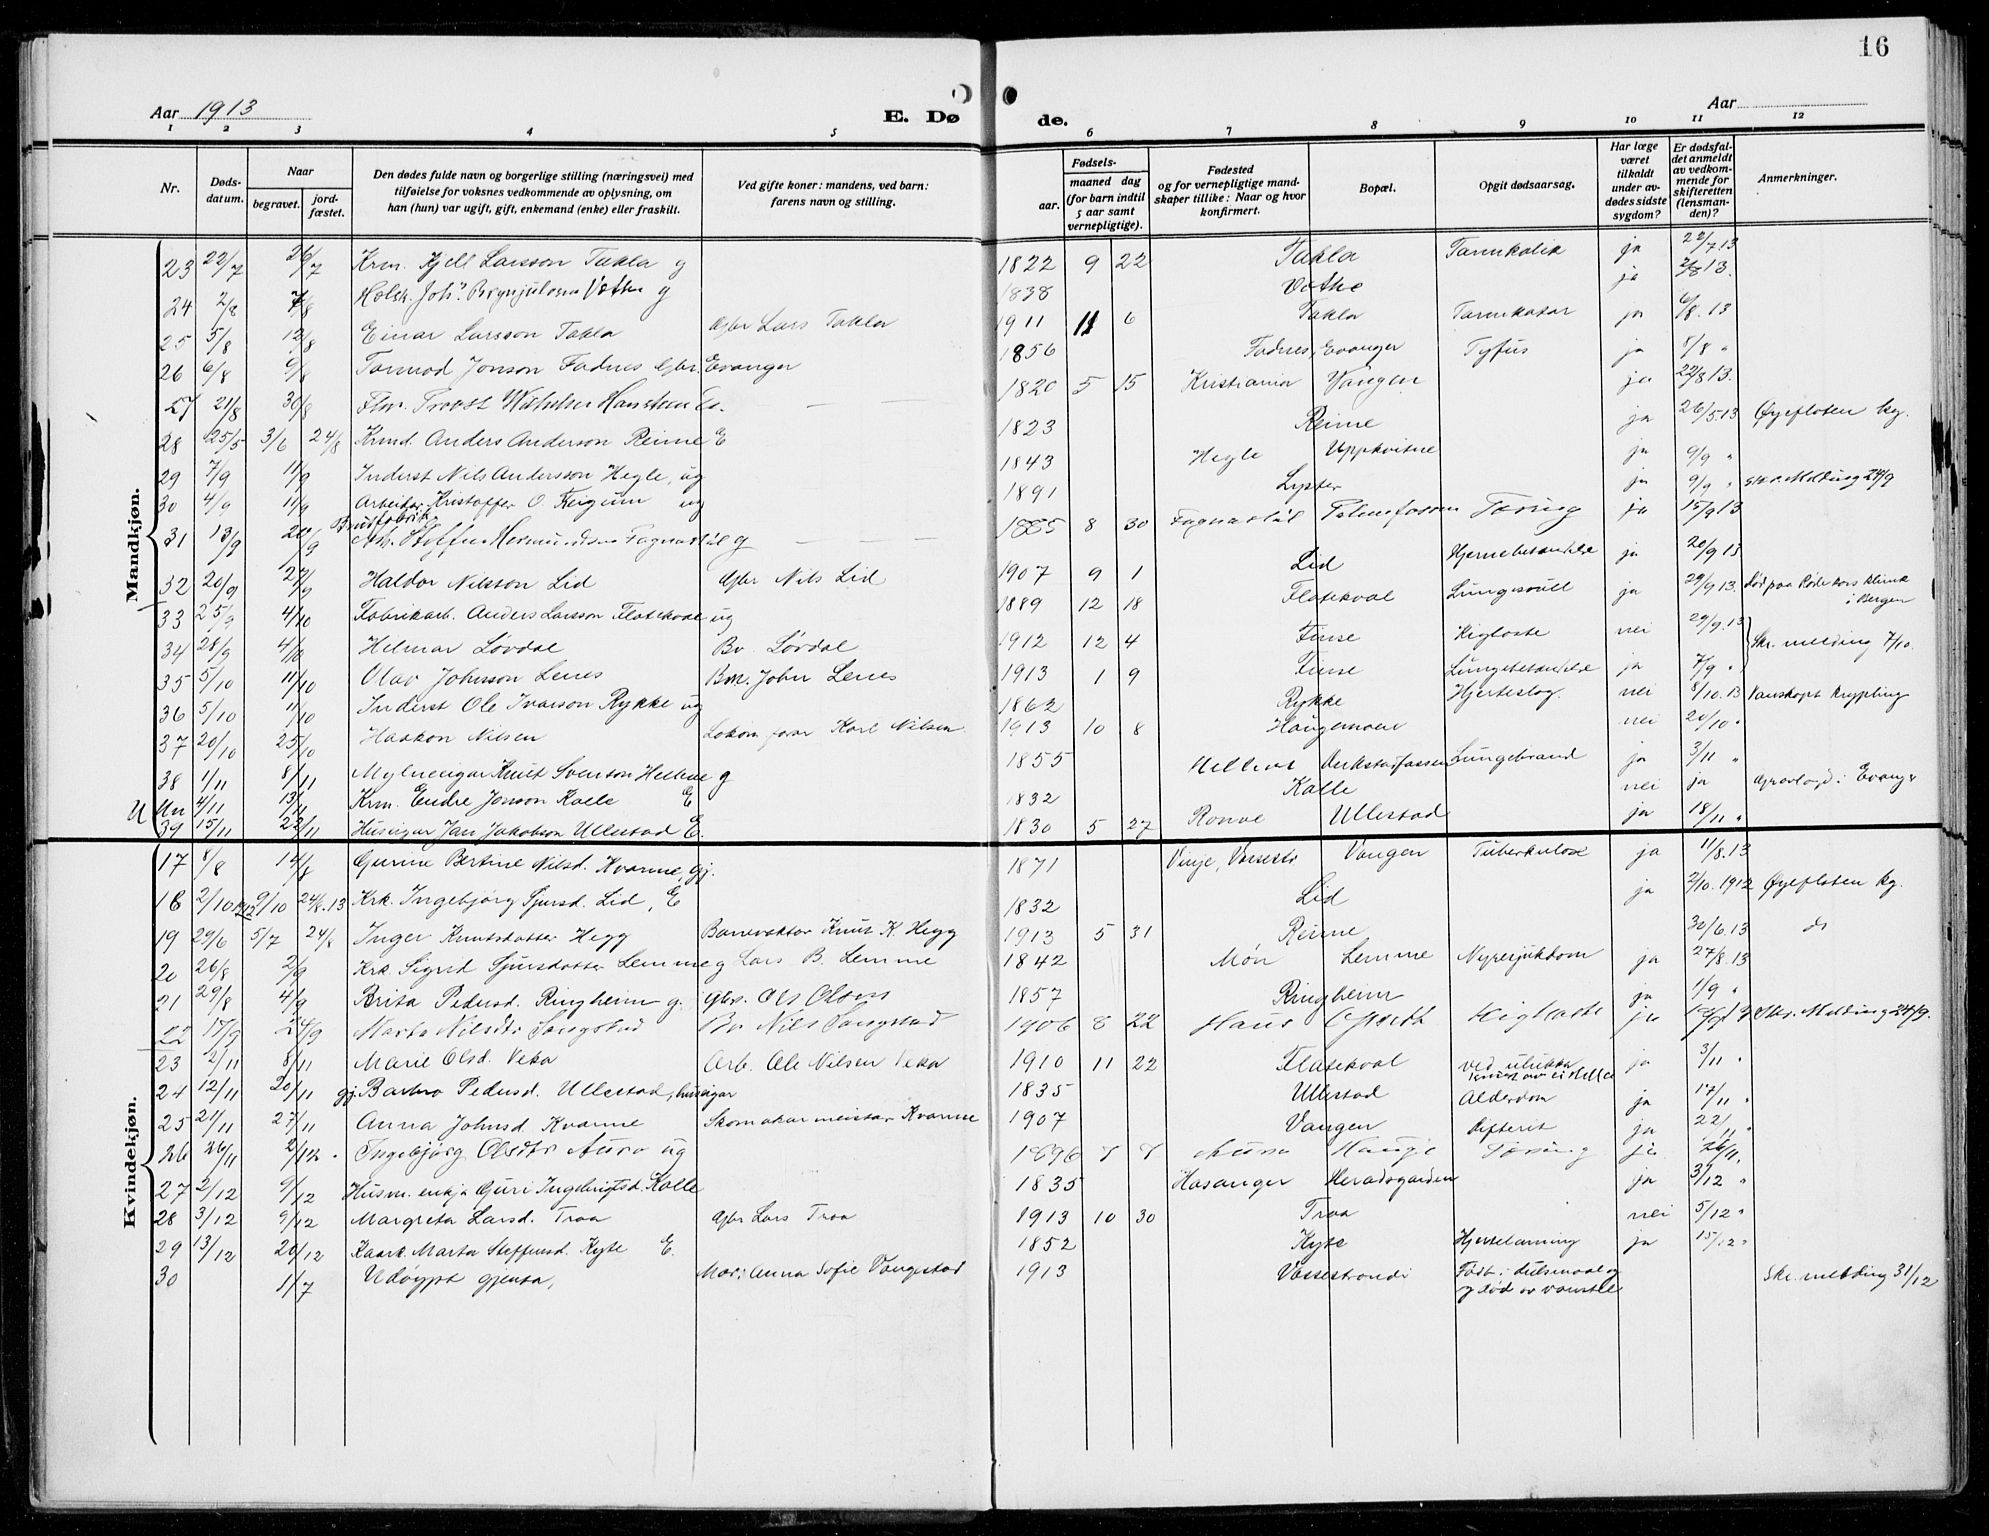 16
Aar 1913
E. Dø
de.
Aar
1 2 3 4 5 6 7 8 9 10 11 12
Nr.
Døds-
datum.
Naar
begravet.
jord-
fæstet.
Den dødes fulde navn og borgerlige stilling (næringsvei) med
tilføielse for voksnes vedkommende av oplysning, om
han (hun) var ugift, gift, enkemand (enke) eller fraskilt.
Ved gifte koner: mandens, ved barn:
farens navn og stilling.
Fødsels-
aar.
maaned dag
(for barn indtil
5 aar samt
vernepligtige).
Fødested
og for vernepligtige mand-
skaper tillike: Naar og hvor
konfirmert.
Bopæl.
Opgit dødsaarsag.
Har læge
været
tilkaldt
under av-
dødes sidste
sygdom?
Er dødsfal-
det anmeldt
av vedkom-
mende for
skifteretten
(lensman-
den)?
Anmerkninger.
Mandkjøn.
23 22/7 26/7 Krm. Kjell Larsson Takla g 1822 9 22 Takla Tarmkolik ja 22/7.13
24 2/8 7/8 Brynjulvson Vethe g 1838 Vethe ja 2/8 13.
25 5/8 12/8 Einar Larsson Takla Gbr Lars Takla 1911 11 6 Takla Tarmkatar ja 6/8.13
26 6/8 9/8 Tormod Jonson Fadnes Gbr. Evanger 1856 Fadnes, Evanger Tyfus ja 8/8 "
27 21/8 30/8 1820 5 15 Kristiania Vangen ja 22/8 13.
28 25/5 3/6 24/8 Krmd. Anders Anderson Reime E 1823 Reime ja 26/5.13 Øyefloten kg.
29 7/9 11/9 Inderst Nils Andersson Hegle, ug 1843 Hegle Uppkvitne ja 9/9 "
30 4/9 11/9 Arbeider Kristoffer O. Feigum ug 1891 Lyster ja 9/9 " skr. Melding 24/9
31 13/9 20/9 Fagnastøl g 1885 8 30 Fagnastøl Tæring ja 15/9 13
32 20/9 27/9 Haldor Nilsson Lid Gbr Nils Lid 1907 9 1 Lid Hjernebetændelse ja 20/9 13
33 25/9 4/10 Fabrikarb. Anders Larsson Flatekval ug 1889 12 18 Flatekval Lungesvull ja 29/9 13. død paa Røde kors klinik
i Bergen
34 28/9 4/10 Helmar Løvdal Bv. Løvdal 1912 12 4 Finse Kighoste nei 29/9.13 Skr. melding 7/10.
35 5/10 11/10 Olav Johnson Lenes Bm. John Lenes 1913 1 9 Finse Lungebetændelse ja 7/9 "
36 5/10 11/10 Inderst Ole Ivarson Rykke ug 1862 Rykke Hjerteslag. nei 8/10.13 Vanskapt krypling
37 20/10 25/10 Haakon Nilsen Lokom. fører Karl Nilsen 1913 10 8 Haugamoen nei 20/10 "
38 1/11 8/11 Mylneeigar Knut Svenson Hellene g 1855 Hellene Lungebrand ja 3/11 "
U Un 4/11 13/11 Krm. Endre Jonson Kalle E 1832 Kalle nei ja Gravlagd i Evanger
39 15/11 22/11 Huseigar Jan Jakobson Ullestad E. 1830 5 27 Ronve Ullestad ja 18/11 "
Kvindekjøn.
17 8/8 14/8 Gurine Bertine Nilsd. Kvarme, gj. 1871 Vinje, Vossestr Vangen Tuberkulose ja 11/8.13
18 2/10 1912 9/10 24/8.13 Krk. Ingebjørg Sjursd. Lid, E 1832 Lid ja 2/10.1912 Øyefloten kg.
19 29/6 5/7 24/8 Inger Knutsdatter Hegg Banevaktar Knut K. Hegg 1913 5 31 Reime 30/6.13 do
20 26/8 2/9 Krk. Sigrid Sjursdatter Lemme g Lars B. Lemme 1842 Møn Lemme Nyresjukdom ja 27/8.13
21 29/8 4/9 Brita Pedersd. Ringheim g. Gbr. Ols Olson 1857 Ringheim ja 1/9 "
22 17/9 24/9 Marta Nilsdtr Sangstad Bv Nils Sangstad 1906 8 22 Haus Kighoste ja Skr. Melding 24/9.
23 2/11 8/11 Marie Olsd. Veka Arb. Ole Nilsen Veka 1910 11 22 Flatekval ved ulukka ja 3/11 "
24 12/11 20/11 gj. Barbro Pedersd. Ullestad, huseigar 1835 Ullestad Alderdom ja 17/11 "
25 21/11 27/11 Anna Johnsd Kvarme Skomakarmeister Kvarme 1907 Vangen Difterit ja 22/11 "
26 26/11 2/12. Ingebjørg Olsdtr Aurø ug 1896 8 8 Hauge Tæring ja 26/11.
27 2/12 9/12 Husm. enkja Guri Ingebrigtsd. Kalle 1835 Hosanger Heradsgarden ja 3/12 "
28 3/12 9/12 Margreta Larsd. Traa Gbr Lars Traa 1913 10 30 Traa nei 5/12 "
29 13/12 20/12 Kaark. Marta Steffensd. Kyte E. 1852 Kyte Hjertelamning ja 15/12 "
30 1/7 Udøypt gjenta, Mor: Anna Sofie Vangestad 1913 Vossestrandi Født i dulsmaal og
død av vanstel Skr. melding 31/12